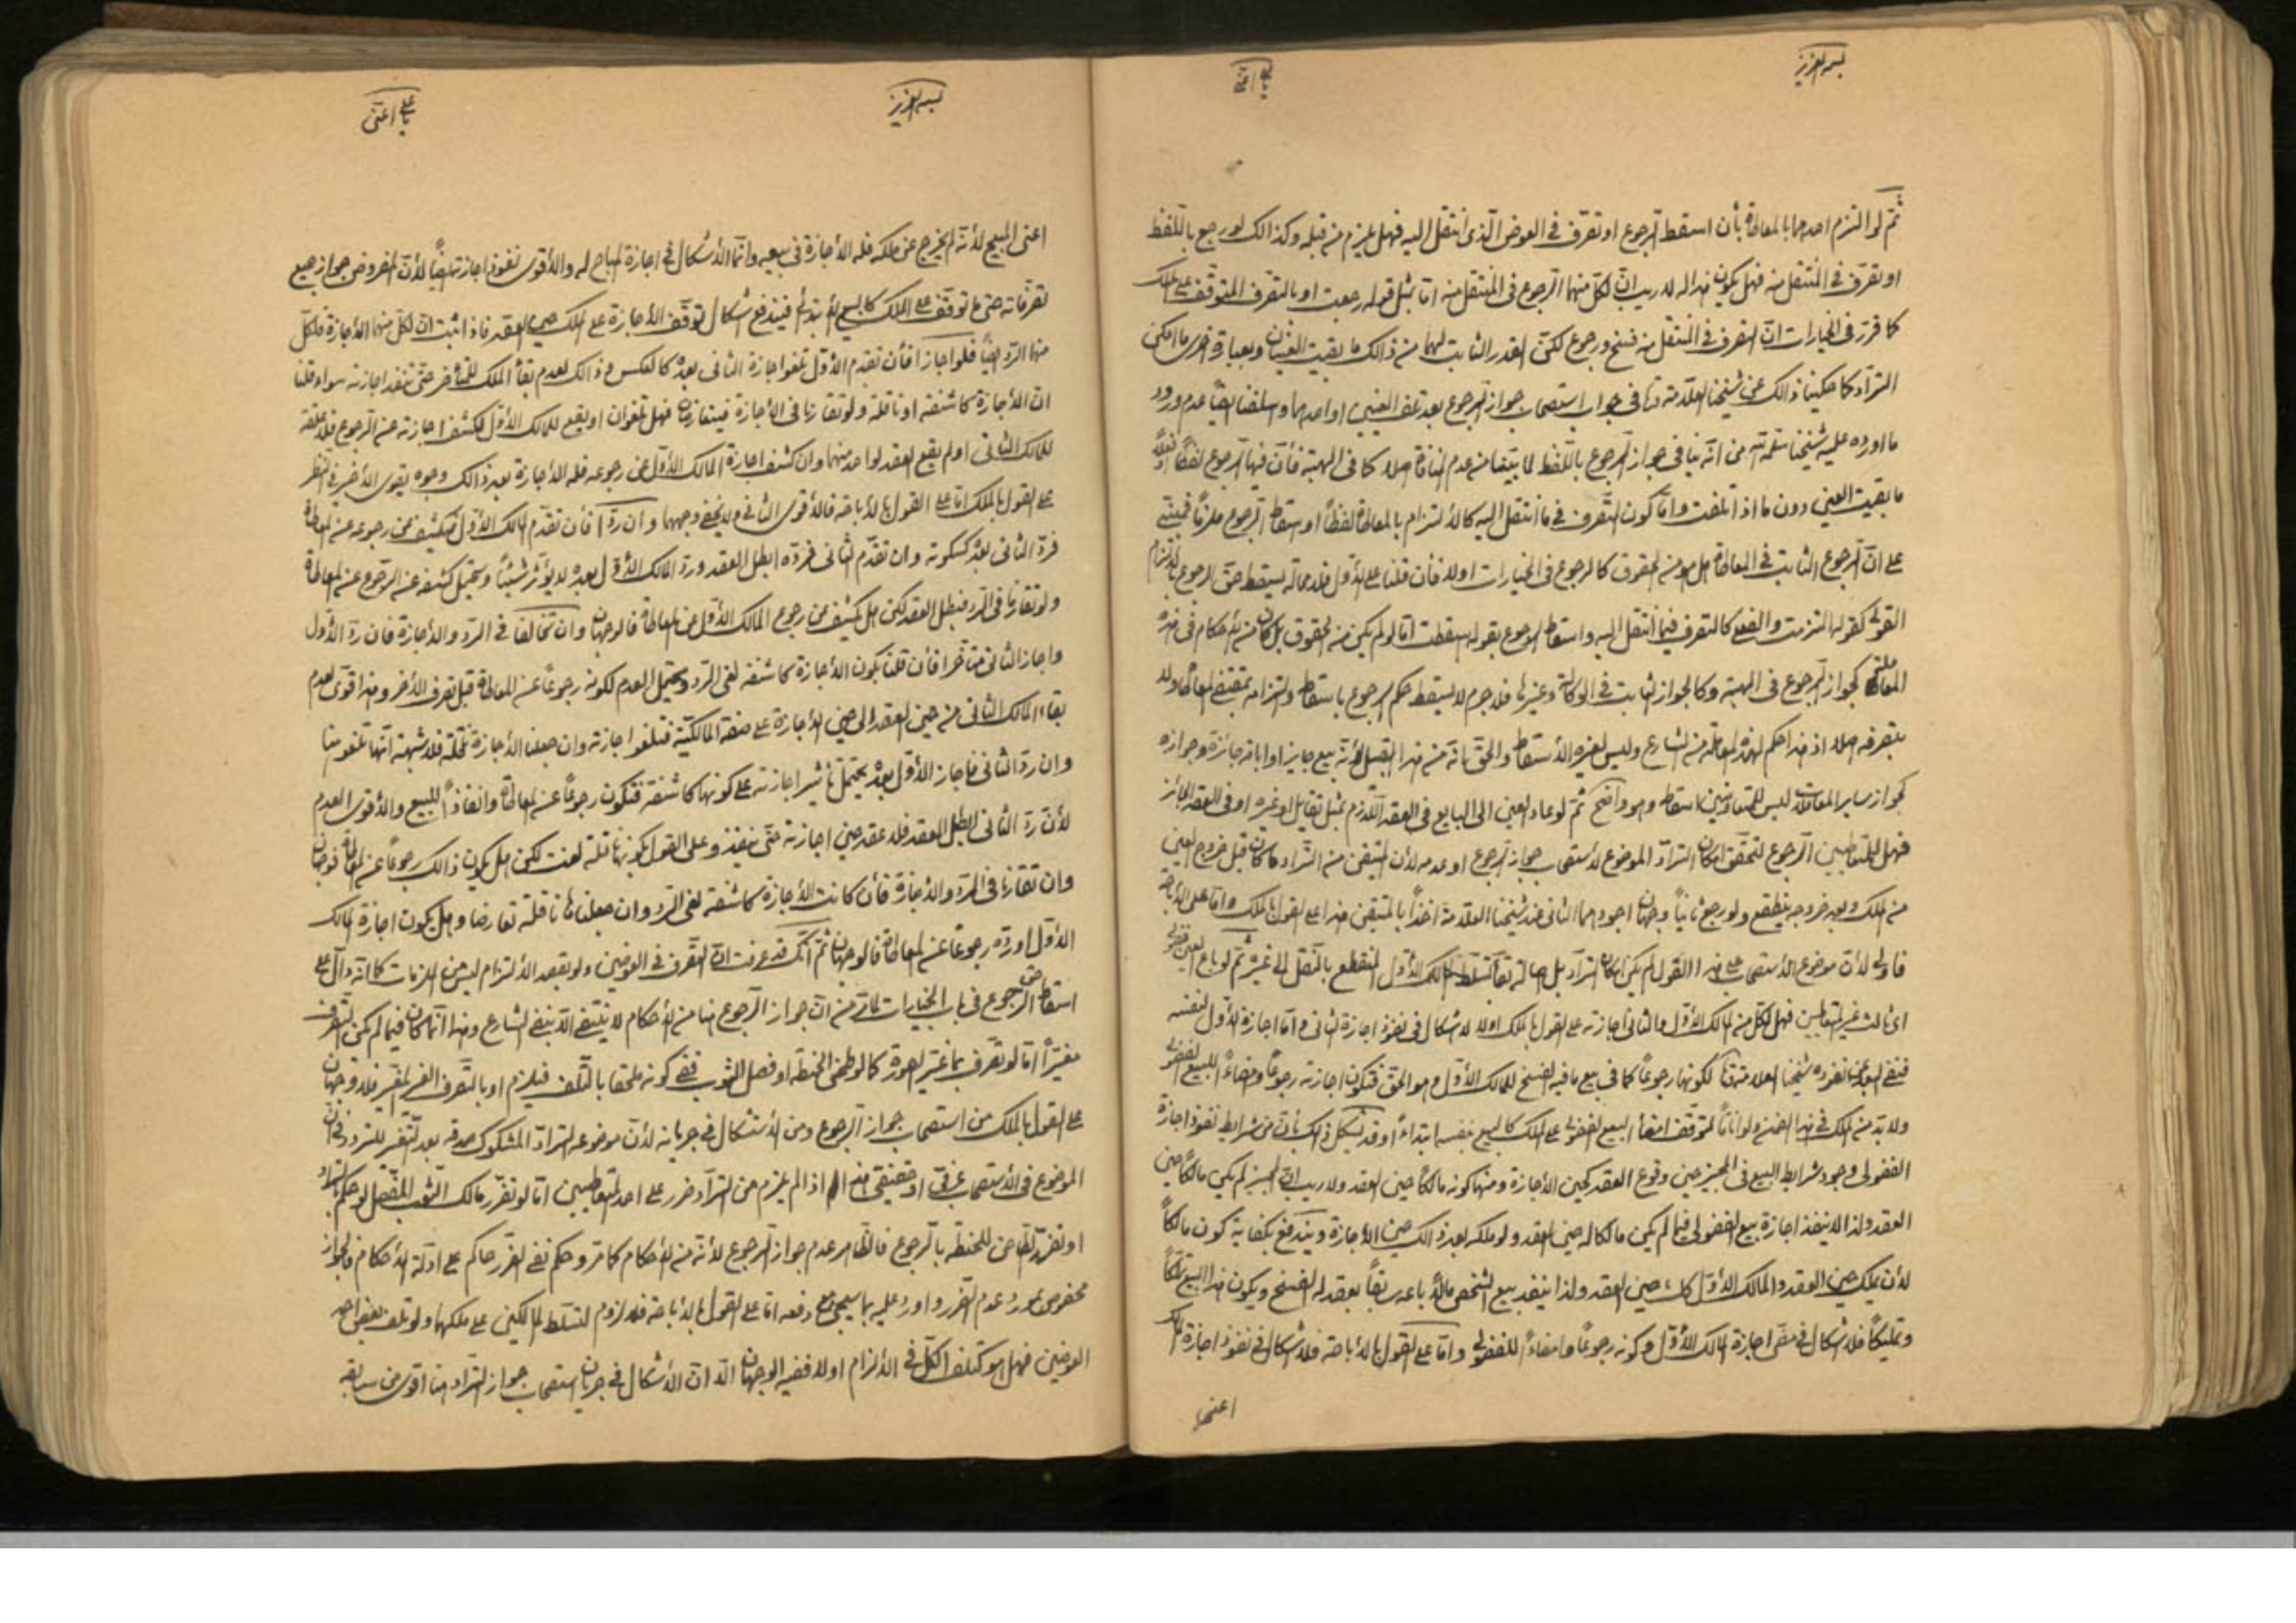 بسمه العزيز
ثمّ لو التزم احدهما بالمعاطاة بأن اسقط الرّجوع او تصرّف في العوض الّذى انتقل اليه فهل يلزم من قبله وكذالك لو رجع باللّفظ
او تصرّف في المنتقل منه فهل يكون لا ريب انّ لكلّ منهما الرّجوع في المنتقل منه امّا بمثل قوله رجعت او بالتصرف المتوقّف على الملك
كما قرّر في الخيارات انّ التصرف في المنتقل منه فسخ ورجوع لكنّ القدر الثابت لهما من ذالك ما بقيت العينان وبعبارة اخرى ما امكن
التّرادّ كما حكينا ذالك عن شيخنا العلّامة في جواب استصحاب جواز الرّجوع بعد تلف العينين او احدهما عدم ورود
ما اورده عليه شيخنا من انّه ينافي جواز الرّجوع باللّفظ لما من عدم المنافاة اصلا كما في الهبة فأنّ فيها الرّجوع لفظا
ما بقيت العين دون ما اذا تلفت وامّا كون التّصرّف في ما انتقل اليه كالألتزام بالمعاطاة لفظاً او اسقاط الرّجوع ملزماً فمبتنى
على انّ الرّجوع الثابت في المعاطاة هل هو من الحقوق كالرجوع في الخيارات او لا فأن قلنا على الأوّل فلا محالة يسقط حقّ الرجوع بالألتزام
القولى كقوله التزمت والفعلى كالتصرف فيما انتقل اليه واسقاط الرجوع بقوله اسقطت امّا لو لم يكن من الحقوق بل كان من الأحكام في هذه
المعاملة كجواز الرّجوع في الهبة وكالجواز الثابت في الوكالة وغيرها فلا جرم لا يسقط حكم الرجوع باسقاطه والتزامه بمقتضى المعاطاة ولا
بتصرفه اصلا اذ هذا حكم لهذه المعاملة من الشارع وليس لغيره الأسقاط والحقّ انّه من هذا القبيل لأنّه بيع جايز او اباحة جائزة وجوازه
كجواز ساير المعاملات ليس للمتعاوضين اسقاطه وهو واضح ثمّ لو عاد العين الى البايع في العقد اللّازم بمثل تقايل او غيره او في العقد الجائز
فهل للمتعاطيين الرّجوع لتحقّق امكان التراد الموضوع لأستصحاب جواز الرجوع او عدمه لأن المتيقن من التّراد ما كان قبل خروج العين
من الملك وبعد خروجه ينقطع ولو رجع ثانياً وجهان اجودهما الثانى عند شيخنا العلامة اخذاً بالمتيقن هذا على القول بالملك وامّا على الأباحة
فاولى لأنّ موضوع الأستصحاب على هذا القول لم يكن امكان التراد بل اصالة بقاء تسلّط المالك الأوّل المنقطع بالنّقل الى غيره ثمّ لو باع العين فضولى
اى ثالث غير المتعاطيين فهل لكلّ من المالك الأوّل والثانى اجازته على القول بالملك او لا لا اشكال في نفوذ اجازة الثانى وامّا اجازة الأوّل لنفسه
ففي البعد عن نفوذه شيخنا العلامة لكونها رجوعاً كما في بيع ما فيه الفسخ للمالك الأوّل وهو الحقّ فتكون اجازته رجوعاً وامضاءً للبيع الفضولى
ولا بدّ من الملك في هذا الضمن ولو اناًما لتوقّف امضاء البيع الفضولى على الملك كالبيع بنفسه ابتداءً وقد يشكل ذالك بأنّ من شرايط نفوذ اجازة
الفضولى وجود شرايط البيع في المجيز حين وقوع العقد كحين الأجازة ومنها كونه مالكاً حين العقد ولا ريب انّ المجيز لم يكن مالكاً حين
العقد ولذا لا ينفذ اجازة بيع الفضولى فيما لم يكن مالكا له حين العقد ولو ملكه بعد ذالك حين الأجازة ويندفع بكفاية كون مالكاً
لأن يملك حين العقد والمالك الأوّل كان حين العقد ولذا ينفذ بيع الشخص مالاً باعه سابقاً بعقد له الفسخ ويكون هذا البيع تملّكاً
وتمليكاً فلا اشكال في اجازة المالك الأوّل وكونه رجوعاً وامضاءً للفضولى وامّا على القول بالأباحة فلا اشكال في نفوذ اجازة المالك
اعنى
بسمه العزيز
يا على اعنّى
اعنى المبيح لأنّه لم يخرج عن ملكه فله الأجازة في بيعه وانّما الأشكال في اجازة المباح له والأقوى نفوذ اجازته ايضاً لأنّ المفروض جواز جميع
تصرفاته حتى ما توقّف على الملك كالبيع لأبتدائى فيندفع اشكال توقّف الأجازة على الملك حين العقد فاذا ثبت انّ لكلّ منهما الأجازة فلكلّ
منهما الردّ ايضاً فلو اجازا فأن تقدم الأوّل تلغو اجازة الثانى بعده كالعكس في ذالك لعدم بقاء الملك للمتأخر حتى تنفذ اجازته سواء قلنا
انّ الأجازة كاشفة او ناقلة ولو تقارنا في الأجازة فهل تلغوان او يقع للمالك الأوّل لكشف اجازته عن الرجوع فلا علقة
للمالك الثانى او لم يقع العقد لواحد منهما وان كشف اجازة المالك الأوّل عن رجوعه فله الأجازة بعد ذالك وجوه يقوى الأخير في النظر
على القول بالملك امّا على القول بالأباحة فالأقوى الثانى ولا يخفى وجهها وان ردّا فأن تقدّم المالك الأوّل فيكشف عن رجوعه عن المعاطاة
فردّ الثانى بعده كسكوته وان تقدّم الثانى فردّه ابطل العقد وردّ المالك الأوّل بعده لا يؤثّر شيئاً ويحتمل كشفه عن الرّجوع عن المعاطاة
ولو تقارنا في الردّ فبطل العقد لكن هل يكشف عن رجوع المالك الأوّل عن المعاطاة فالوجهان وان تخالفا في الردّ والأجازة فان ردّ الأوّل
واجاز الثانى متأخّرا فأن قلنا بكون الأجازة كاشفة لغى الردّ ويحتمل العدم لكونه رجوعاً عن المعاطاة قبل تصرف الأخر وهذا اقوى لعدم
بقاء المالك الثانى من حين العقد الى حين الأجازة على صفة المالكيّة فتلغو اجازته وان جعلنا الأجازة ناقلة فلا شبهة انّها تلغو هنا
وان ردّ الثانى فاجاز الأوّل بعده يحتمل تأثير اجازته على كونها كاشفة فتكون رجوعاً عن المعاطاة وانفاذاً للبيع والأقوى العدم
لأنّ ردّ الثانى ابطل العقد فلا عقد حين اجازته حتى ينفذ وعلى القول بكونها ناقلة لغت لكن هل يكون ذالك رجوعاً عن المعاطاة فوجهان
وان تقارنا في الردّ والأجازة فأن كانت الأجازة كاشفة لغى الردّ وان جعلناها ناقلة تعارضا وهل يكون اجازة المالك
الأوّل او ردّه رجوعاً عن المعاطاة فالوجهان ثمّ انّك قد عرفت انّ التصرّف في العوضين ولو بقصد الألتزام ليس من الملزمات كما انّه دالّ على
اسقاط حق الرّجوع في باب الخيارات لما مرّ من انّ جواز الرّجوع هنا من الأحكام لا ينتفى الّا بنفى الشارع وهذا انّما كان فيما لم يكن التصرف
مغيّراً امّا لو تصرّف بما غيّر الصورة كما لو طحن الحنطة او فصل الثوب ففى كونه ملحقا بالتّلف فيلزم او بالتصرف الغير المغير فلا وجهان
على القول بالملك من استصحاب جواز الرّجوع ومن الأشكال في جريانه لأنّ موضوعه الترادّ المشكوك صدقه بعد التّغيّر للتردد في انّ
الموضوع في الأستصحاب عرفىّ او حقيقى هذا اذا لم يلزم من الترادّ ضرر على احد المتعاطيين امّا لو تضرّر مالك الثوب المفصّل لو حكم بالترادّ
او تضرّر الطاحن للحنطة بالرّجوع فالظاهر عدم جواز الرّجوع لأنّه من الأحكام كما مرّ وحكم نفى الضرر حاكم على ادلّة الأحكام فالجواز
مخصوص بمورد عدم الضرر واورد عليه بما سيجىء مع دفعه امّا على القول بالأباحة فلا لزوم لتسلّط المالكين على ملكهما ولو تلف بعض احد
العوضين فهل هو كتلف الكلّ في الألزام او لا ففيه الوجهان الّا انّ الأشكال في جريان استصحاب جواز الترادّ هنا اقوى من سابقه